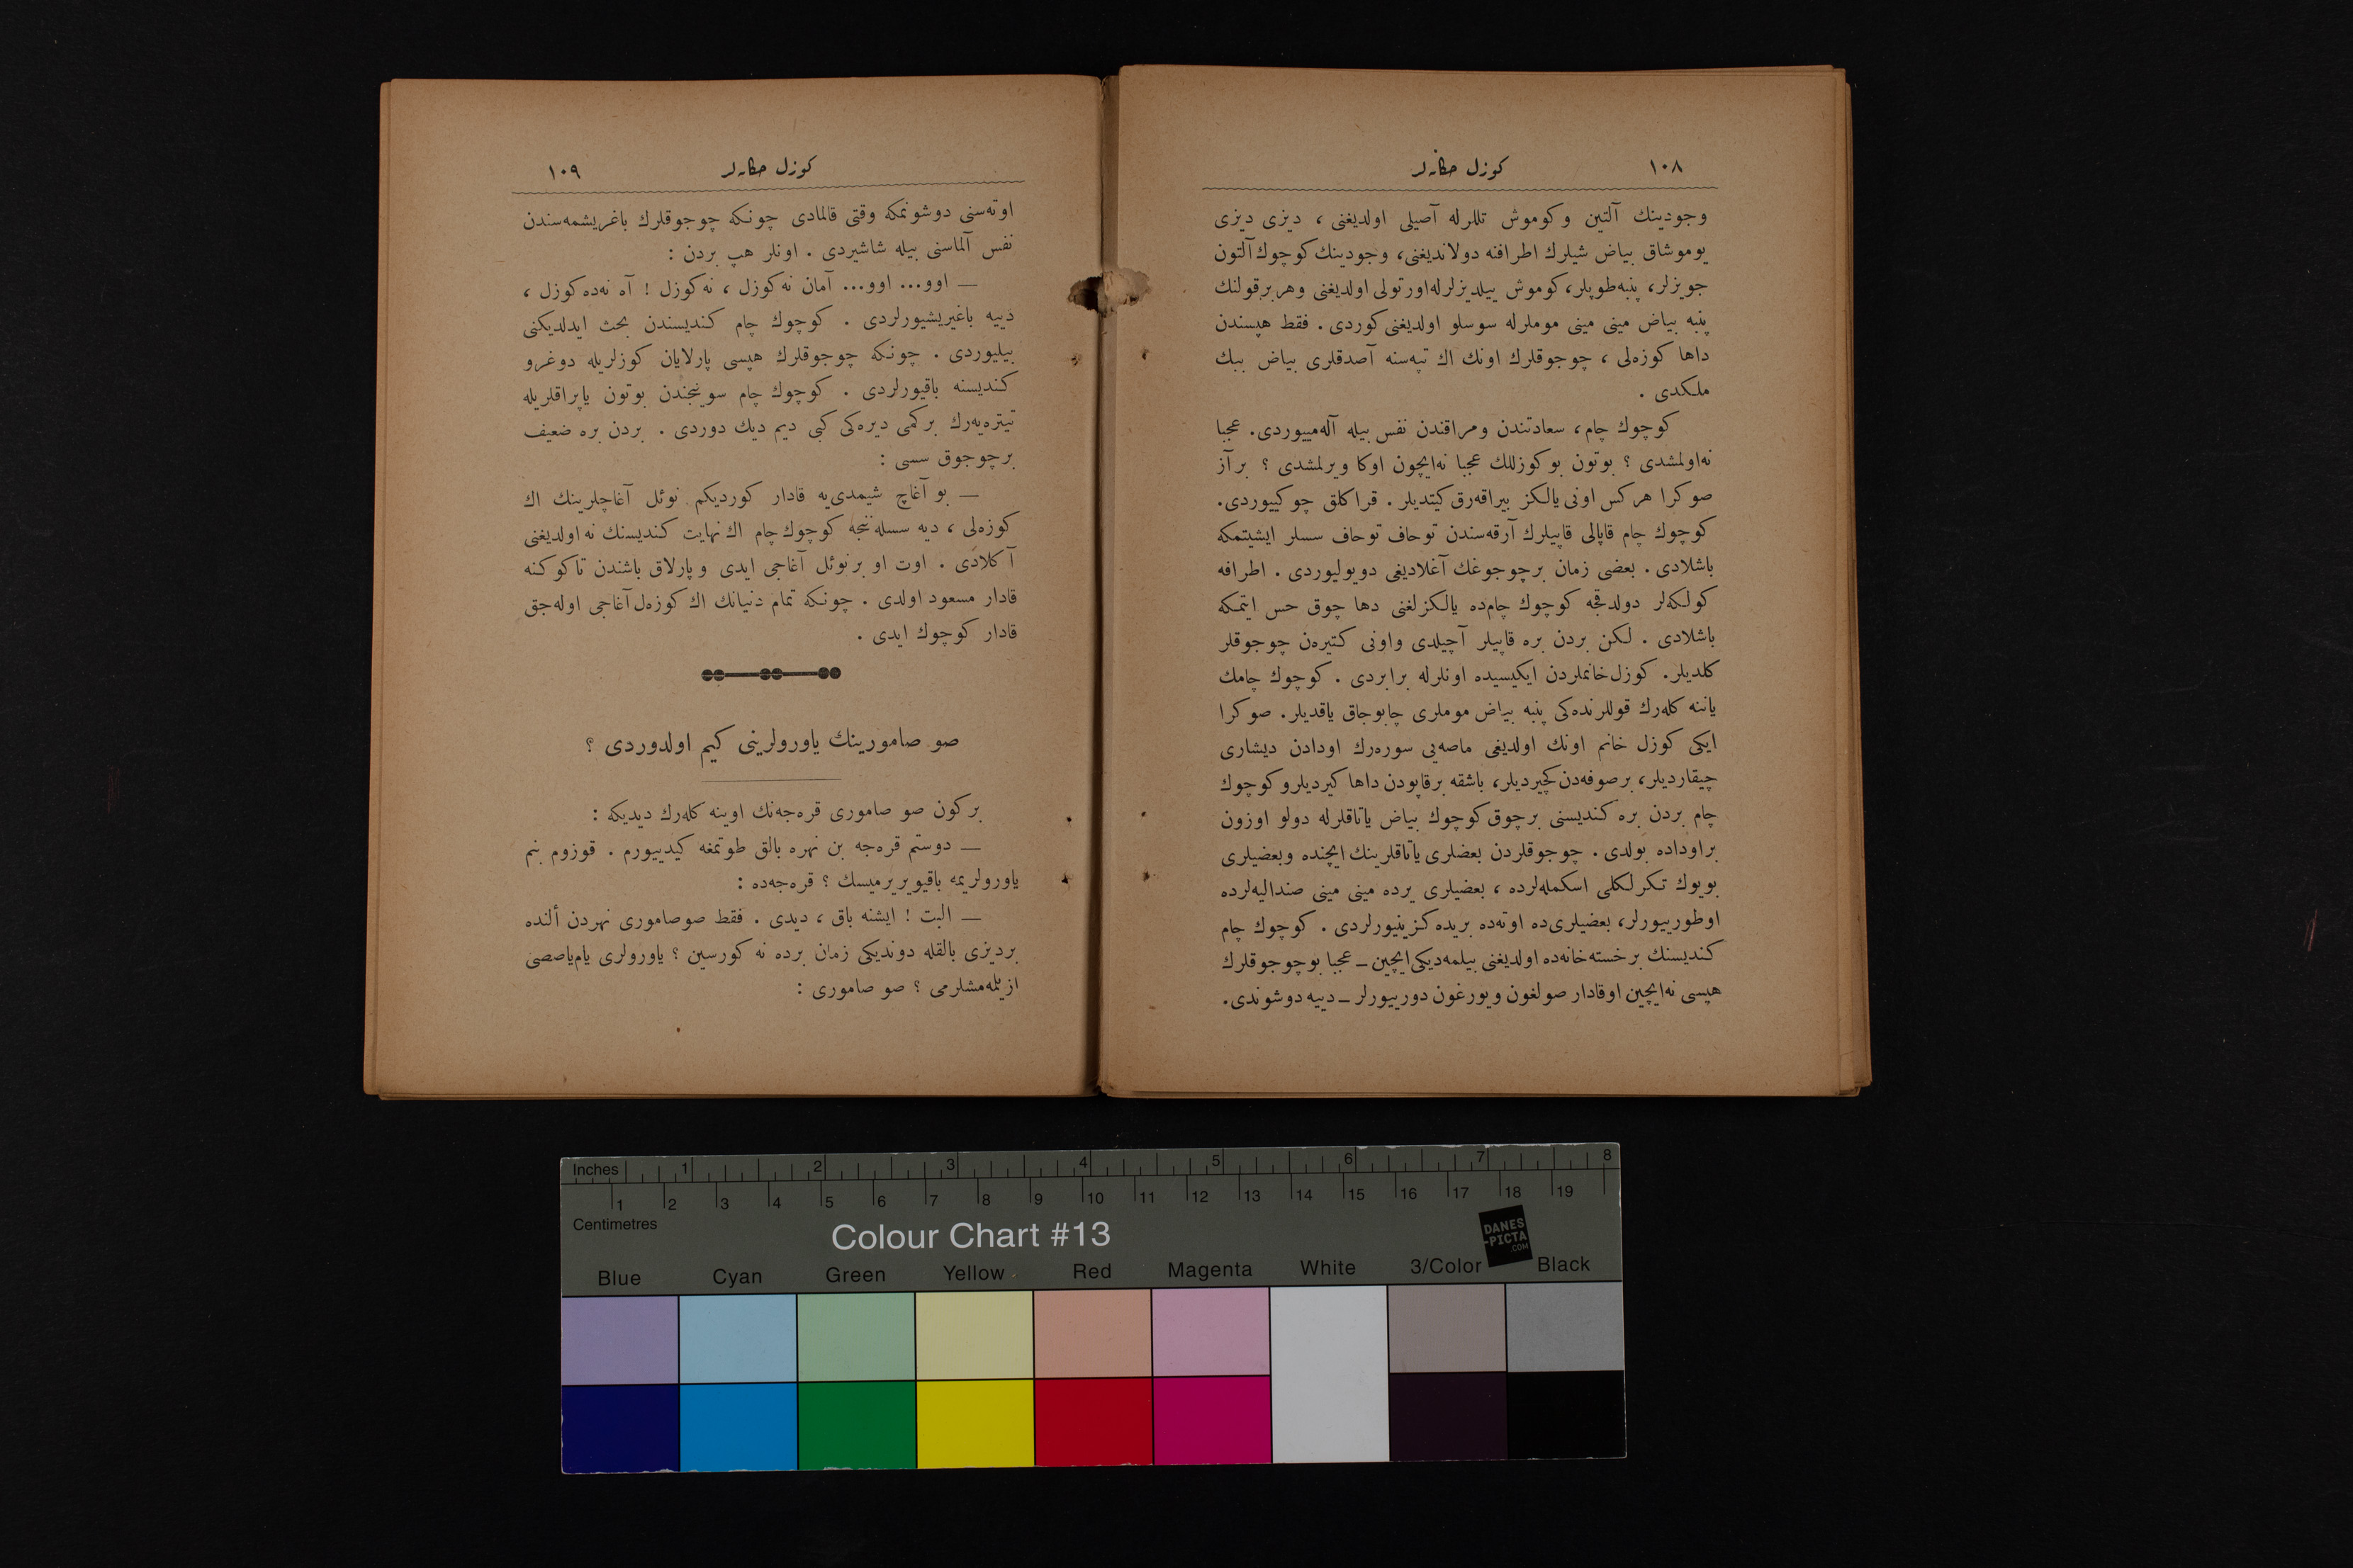 ١٠٨
كوزل حكايه‌لر
وجودينك آلتين وكوموش تللرله آصيلى اولديغنى ، ديزى ديزى
يوموشاق بياض شيلرك اطرافنه دولانديغنى، وجودينك كوچوك آلتون
جويزلر، پنبه طوپلر، كوموش ييلديزلرله اورتولى اولديغنى وهر برقولنك
پنبه بياض مينى مينى موملرله سوسلو اولديغنى كوردى . فقط هپسندن
داها كوزه‌لى ، چوجوقلرك اونك اك تپه‌سنه آصدقلرى بياض ببك
ملكدى .
كوچوك چام ، سعادتندن ومراقندن نفس بيله آله‌مييوردى. عجبا
نه‌اولمشدى ؟ بوتون بو كوزللك عجبا نه‌ايچون اوكا ويرلمشدى ؟ بر آز
صوكرا هركس اونى يالكز بيراقه‌رق كيتديلر . قراكلق چوكييوردى.
كوچوك چام قاپالى قاپيلرك آرقه‌سندن توحاف توحاف سسلر ايشيتمكه
باشلادى . بعضى زمان برچوجوغك آغلاديغى دويوليوردى . اطرافه
كولكه‌لر دولدقجه كوچوك چام‌ده يالكزلغنى دها چوق حس ايتمكه
باشلادى . لكن بردن بره قاپيلر آچيلدى واونى كتيره‌ن چوجوقلر
كلديلر. كوزل خانملردن ايكيسيده اونلرله برابردى . كوچوك چامك
ياننه كله‌رك قوللرنده‌كى پنبه بياض موملرى چابوجاق ياقديلر. صوكرا
ايكى كوزل خانم اونك اولديغى ماصه‌يى سوره‌رك اودادن ديشارى
چيقارديلر، برصوفه‌دن كچيرديلر، باشقه برقاپودن داها كيرديلر وكوچوك
چام بردن بره كنديسنى برچوق كوچوك بياض ياتاقلرله دولو اوزون
براوداده بولدى . چوجوقلردن بعضلرى ياتاقلرينك ايچنده وبعضيلرى
بويوك تكرلكلى اسكمله‌لرده ، بعضيلرى يرده مينى مينى صنداليه‌لرده
اوطورييورلر، بعضيلرى‌ده اوته‌ده بريده كزينيورلردى . كوچوك چام
كنديسنك برخسته‌خانه‌ده اولديغنى بيلمه‌ديكى ايچين ــ عجبا بوچوجوقلرك
هپسى نه‌ايچين اوقادار صولغون ويورغون دورييورلر ــ دييه دوشوندى.
كوزل حكايه‌لر
١٠٩
اوته‌سنى دوشونمكه وقتى قالمادى چونكه چوجوقلرك باغريشمه‌سندن
نفس آلماسنى بيله شاشيردى . اونلر هپ بردن :
ــ اوو... اوو... آمان نه‌كوزل ، نه‌كوزل ! آه نه‌ده كوزل ،
دييه باغيريشيورلردى . كوچوك چام كنديسندن بحث ايدلديكنى
بيليوردى . چونكه چوجوقلرك هپسى پارلايان كوزلريله دوغرو
كنديسنه باقيورلردى . كوچوك چام سوينجندن بوتون ياپراقلريله
تيتره‌يه‌رك بركمى ديره‌كى كبى ديم ديك دوردى . بردن بره ضعيف
برچوجوق سسى :
ــ بو آغاچ شيمدى‌يه قادار كورديكم نوئل آغاچلرينك اك
كوزه‌لى ، ديه سسله‌ننجه كوچوك چام اك نهايت كنديسنك نه اولديغنى
آكلادى . اوت او برنوئل آغاجى ايدى و پارلاق باشندن تا كوكنه
قادار مسعود اولدى . چونكه تمام دنيانك اك كوزه‌ل آغاجى اوله‌جق
قادار كوچوك ايدى .
صو صامورينك ياورولرينى كيم اولدوردى ؟
بركون صو صامورى قره‌جه‌نك اوينه كله‌رك ديديكه :
ــ دوستم قره‌جه بن نهره بالق طوتمغه كيدييورم . قوزوم بنم
ياورولريمه باقيويريرميسك ؟ قره‌جه‌ده :
ــ البت ! ايشنه باق ، ديدى . فقط صوصامورى نهردن ألنده
برديزى بالقله دونديكى زمان برده نه كورسين ؟ ياورولرى يام‌ياصصى
ازيلمه‌مشلرمى ؟ صو صامورى :
Inches 1 2 3 4 5 6 7 8
1 2 3 4 5 6 7 8 9 10 11 12 13 14 15 16 17 18 19
Centimetres
Colour Chart #13
DANES
-PICTA
.COM
Blue Cyan Green Yellow Red Magenta White 3/Color Black